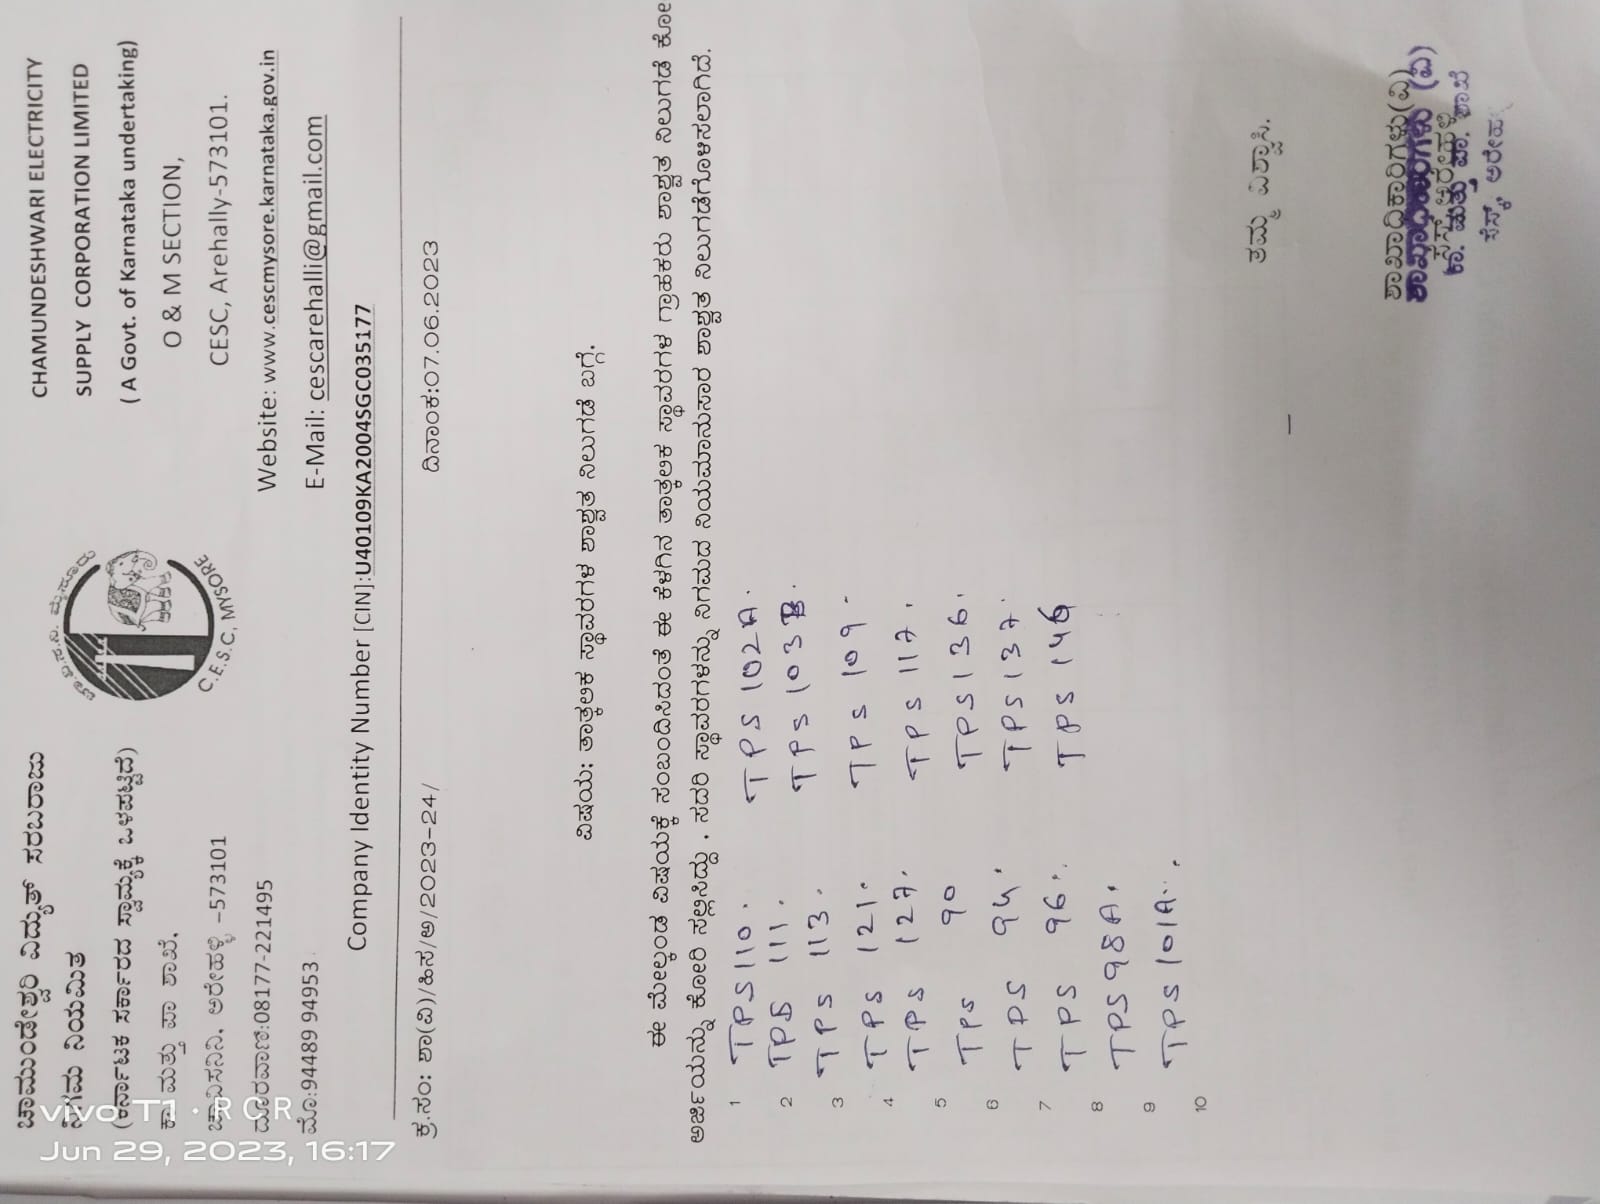 ಚಾಮುಂಡೇಶ್ವರಿ ವಿದ್ಯುತ್ ಸರಬರಾಜು
ನಿಗಮ ನಿಯಮಿತ
(ಕರ್ನಾಟಕ ಸರ್ಕಾರದ ಸ್ವಾಮ್ಯಕ್ಕೆ ಒಳಪಟ್ಟಿದೆ)
ಕಾ ಮತ್ತು ಪಾ ಶಾಖೆ.
ಚಾವಿಸನಿನಿ, ಅರೇಹಳ್ಳಿ -573101
ದೂರವಾಣಿ:08177-221495
ಮೊ:94489 94953
C.E.S.C, MYSORE
CHAMUNDESHWARI ELECTRICITY
SUPPLY CORPORATION LIMITED
( A Govt. of Karnataka undertaking)
O & M SECTION,
CESC, Arehally-573101.
Website: www.cescmysore.karnataka.gov.in
E-Mail: cescarehalli@gmail.com
Company Identity Number [CIN]:U40109KA2004SGC035177
ಕ್ರ.ಸಂ: ಶಾ(ವಿ)/ಹಿಸ/ಅ/2023-24/ ದಿನಾಂಕ:07.06.2023
ವಿಷಯ: ತಾತ್ಕಲಿಕ ಸ್ಥಾವರಗಳ ಶಾಶ್ವತ ನಿಲುಗಡೆ ಬಗ್ಗೆ.
ಈ ಮೇಲ್ಕಂಡ ವಿಷಯಕ್ಕೆ ಸಂಬಂದಿಸಿದಂತೆ ಈ ಕೆಳಗಿನ ತಾತ್ಕಲಿಕ ಸ್ಥಾವರಗಳ ಗ್ರಾಹಕರು ಶಾಶ್ವತ ನಿಲುಗಡೆ ಕೋ
ಅರ್ಜಿಯನ್ನು ಕೋರಿ ಸಲ್ಲಿಸಿದ್ದು, ಸದರಿ ಸ್ಥಾವರಗಳನ್ನು ನಿಗಮದ ನಿಯಮಾನುಸಾರ ಶಾಶ್ವತ ನಿಲುಗಡೆಗೊಳಿಸಲಾಗಿದೆ.
1 TPS 110. TPS 102A.
2 TPS 111. TPS 103B.
3 TPS 113. TPS 109.
4 TPS 121. TPS 117.
5 TPS 127. TPS 136.
6 TPS 90 TPS 137.
7 TPS 94. TPS 146
8 TPS 96.
9 TPS 98A.
10 TPS 101A.
ತಮ್ಮ ವಿಶ್ವಾಸಿ.
ಶಾಖಾಧಿಕಾರಿಗಳು(ವಿ)
ಶಾಖಾಧಿಕಾರಿಗಳು (ವಿ)
ಕಾ. ಮತ್ತು ಪಾ. ಶಾಖೆ
ಸೆಸ್ಕ್, ಅರೇಹ
vivo T1 · R C R
Jun 29, 2023, 16:17